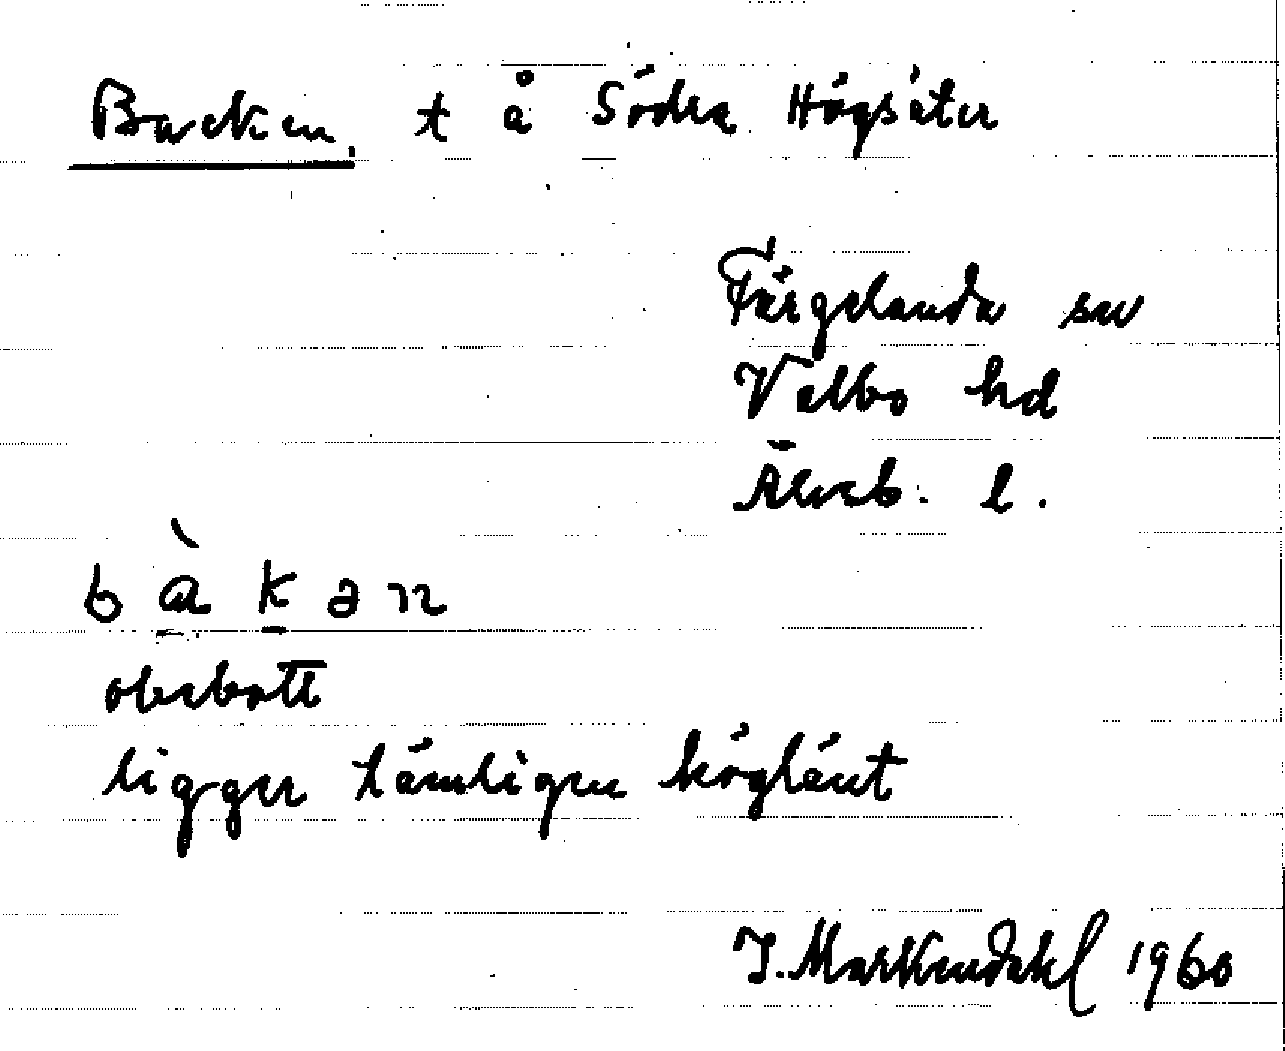 Backen, t å Södra Högsäter
Färgelanda sn
Valbo hd
Älvsb. l.
b à k ə n
obebott
ligger tämligen höglänt
I. Markendahl 1960